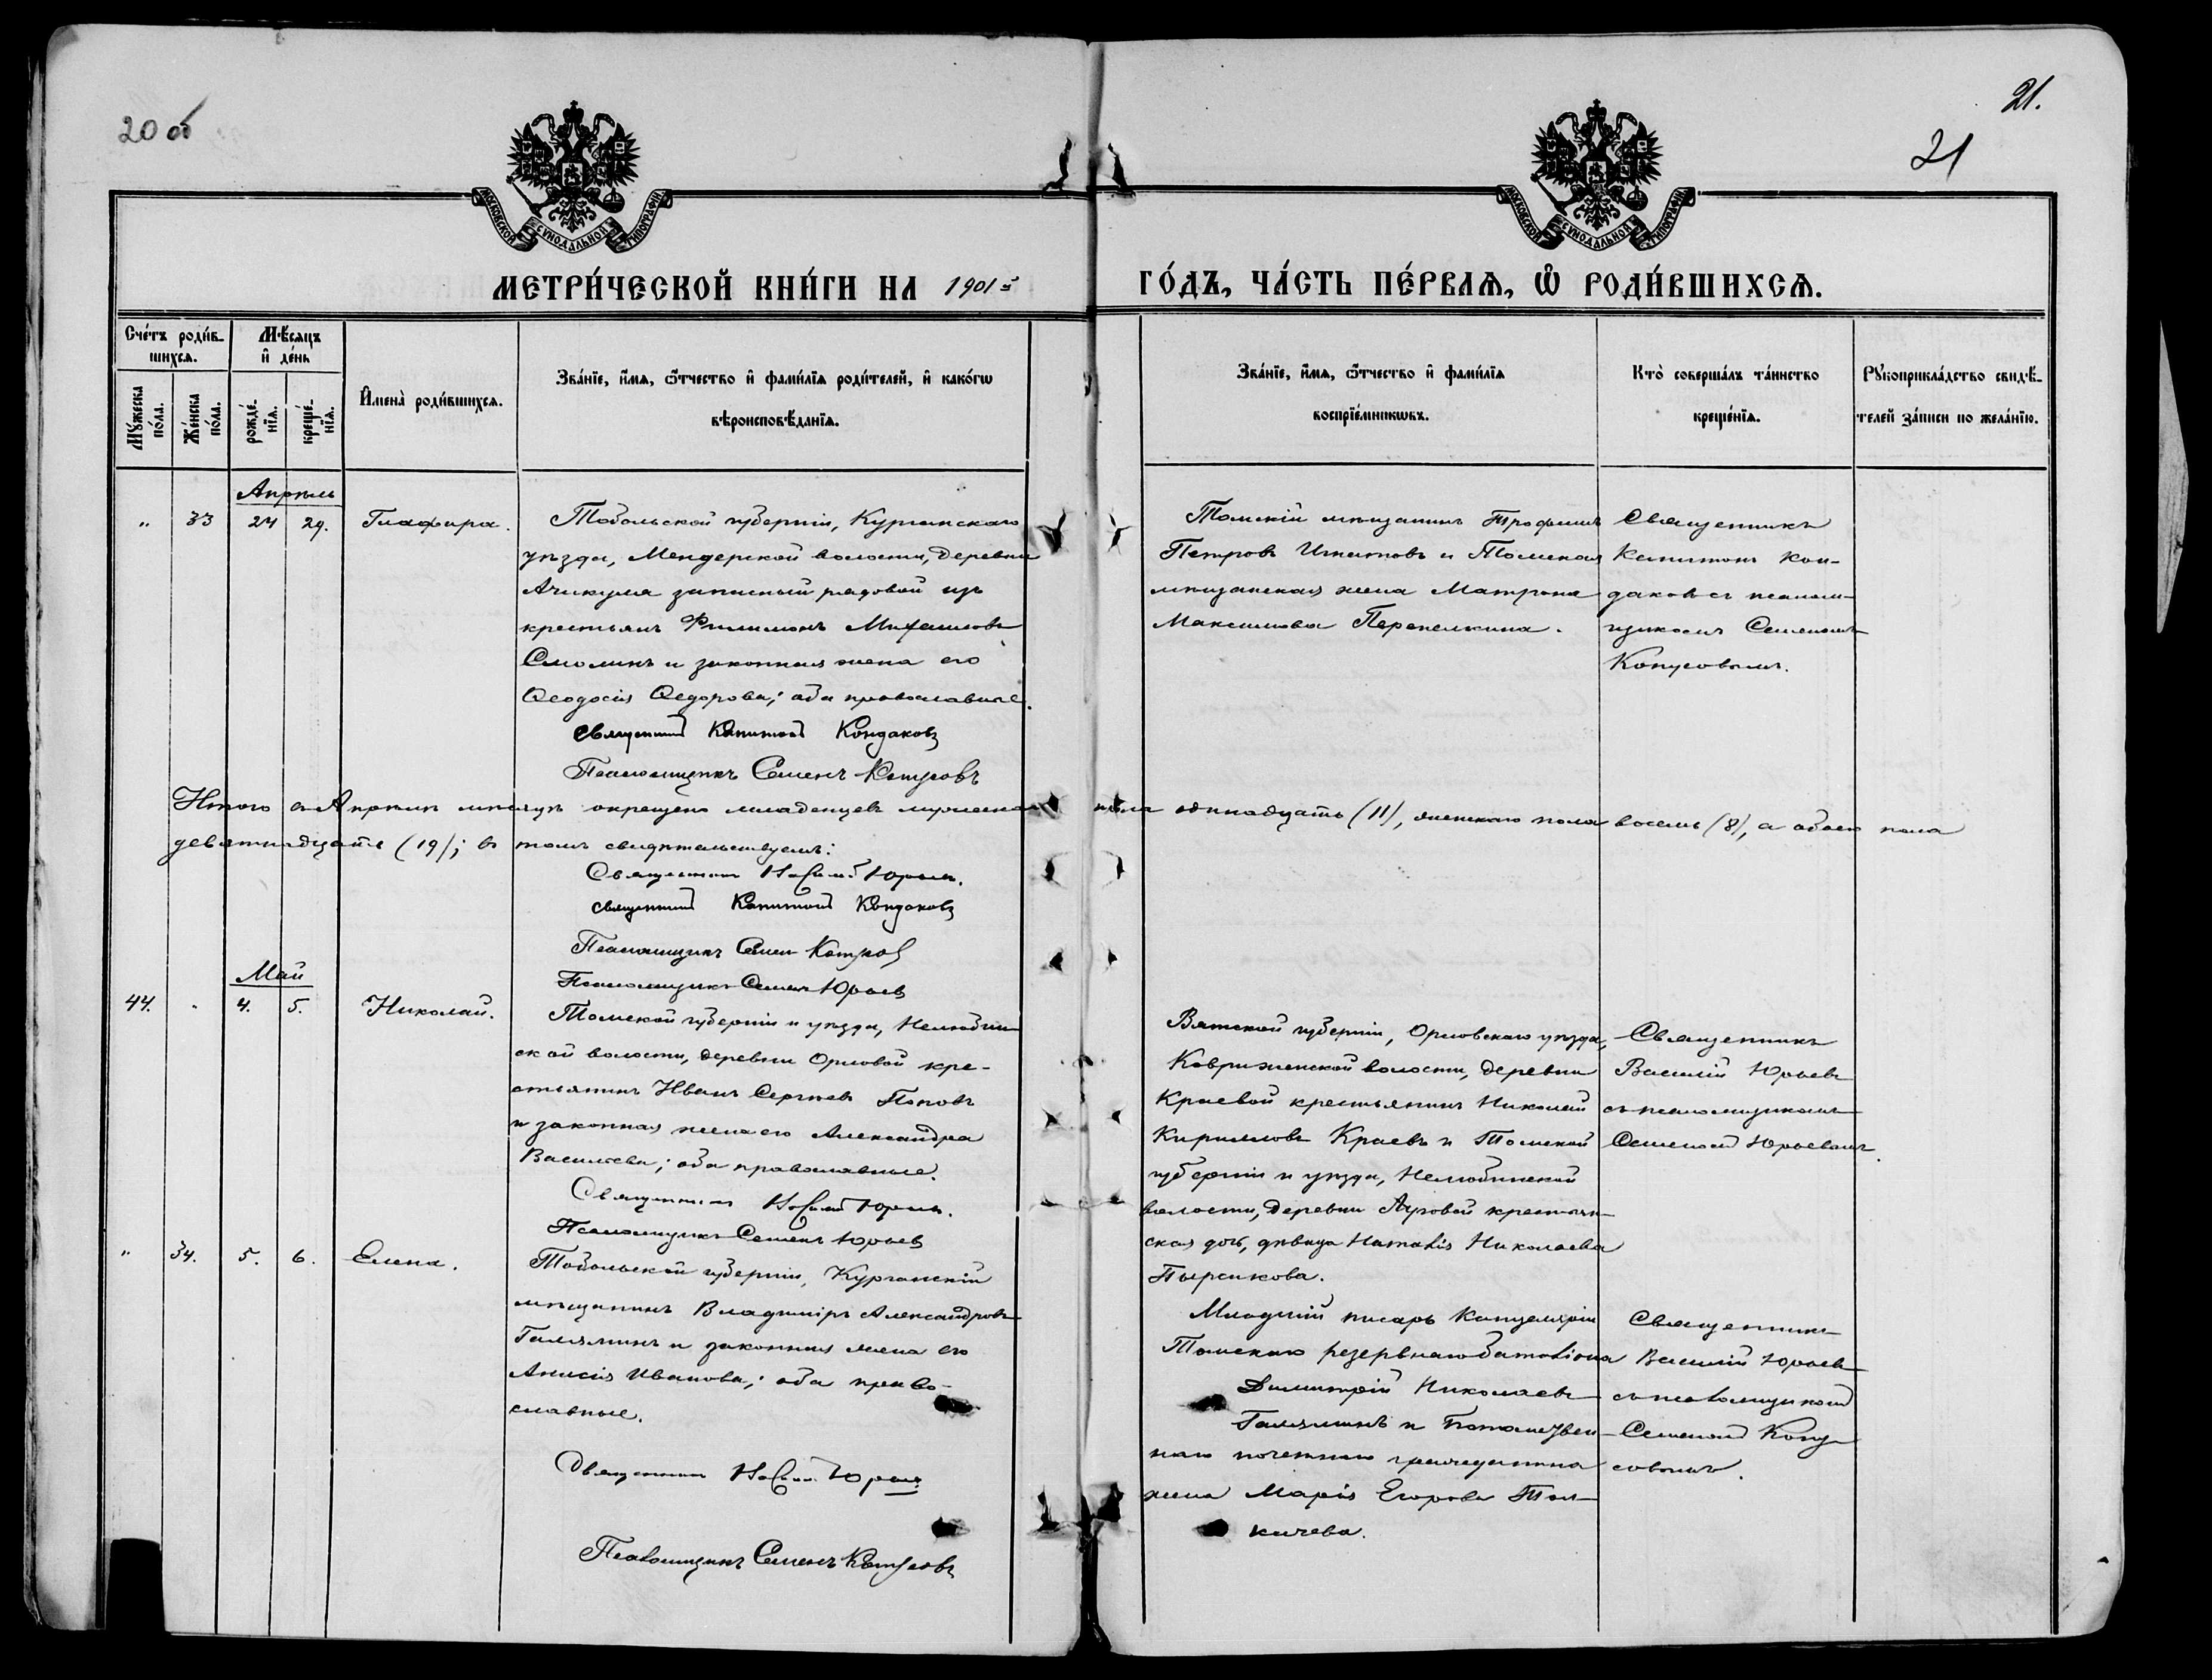 20 об
21.
21
МОСКОВСКОЙ СѴНОДАЛЬНОЙ ТИПОГРАФІИ
МОСКОВСКОЙ СѴНОДАЛЬНОЙ ТИПОГРАФІИ
МЕТРИ́ЧЕСКОЙ КНИ́ГИ НА 1901й ГО́ДЪ, ЧА́СТЬ ПЕ́РВАѦ, Ѡ҆ РОДИ́ВШИХСѦ.
Сче́тъ роди́в-
шихсѧ.
Мꙋ́жеска по́ла.
Же́нска по́ла.
Мѣ́сѧцъ
и҆ де́нь
рожде́-
нїѧ.
креще́-
нїѧ.
И҆мена̀ роди́вшихсѧ.
Зва́нїе, и҆́мѧ, ѻ҆́тчество и҆ фами́лїѧ роди́телей, и҆ како́гѡ
вѣроисповѣ́данїѧ.
Зва́нїе, и҆́мѧ, ѻ҆́тчество и҆ фами́лїѧ
воспрїе́мникѡвъ.
Кто̀ соверша́лъ та́инство
креще́нїѧ.
Рꙋкоприкла́дство свидѣ́-
телей за́писи по жела́нїю.
Апрѣль
„ 33 24 29. Глафира.
Тобольской губерніи, Курганскаго
уѣзда, Мендерской волости, деревни
Ачикуля запасный рядовой изъ
крестьянъ Филимонъ Михаиловъ
Смолинъ и законная жена его
Ѳеодосія Ѳедорова; оба православные.
Священникъ Капитонъ Кондаковъ
Псаломщикъ Семенъ
Томскій мѣщанинъ Трофимъ
Петровъ Игнатовъ и Томская
мѣщанская жена Матрона
Максимова Перепелкина.
Священникъ
Капитонъ Кон-
даковъ съ псалом-
щикомъ Семеномъ
Итого въ Апрѣлѣ мѣсяцѣ окрещено младенцевъ мужеска пола одиннадцать (11), женскаго пола восемь (8), а обоего пола
девятнадцать (19); въ томъ свидѣтельствуемъ:
Священникъ Василій Юрьевъ.
Священникъ Капитонъ Кондаковъ
Псаломщикъ Семенъ
Псаломщикъ Семенъ Юрьевъ
Май
44. „ 4. 5. Николай.
Томской губерніи и уѣзда, Нелюбин-
ской волости, деревни Орловой кре-
стьянинъ Иванъ Сергѣевъ Поповъ
и законная жена его Александра
Васильева; оба православные.
Священникъ Василій Юрьевъ.
Псаломщикъ Семенъ Юрьевъ
Вятской губерніи, Орловскаго уѣзда,
Ковриженской волости, деревни
Краевой крестьянинъ Николай
Кирилловъ Краевъ и Томской
губерніи и уѣзда, Нелюбинской
волости, деревни крестьян-
ская дочь, дѣвица Наталія Николаева
Пырсикова.
Священникъ
Василій Юрьевъ
съ псаломщикомъ
Семеномъ Юрьевымъ.
„ 34. 5. 6. Елена.
Тобольской губерніи, Курганскій
мѣщанинъ Владиміръ Александровъ
Галяминъ и законная жена его
Анисія Иванова; оба право-
славные.
Священникъ Василій Юрьевъ
Псаломщикъ Семенъ
Младшій писарь Канцеляріи
Томскаго резервнаго баталіона
Димитрій Николаевъ
Галяминъ и Потомствен-
наго почетнаго гражданина
жена Марія Егорова Тол-
качева.
Священникъ
Василій Юрьевъ
съ псаломщикомъ
Семеномъ